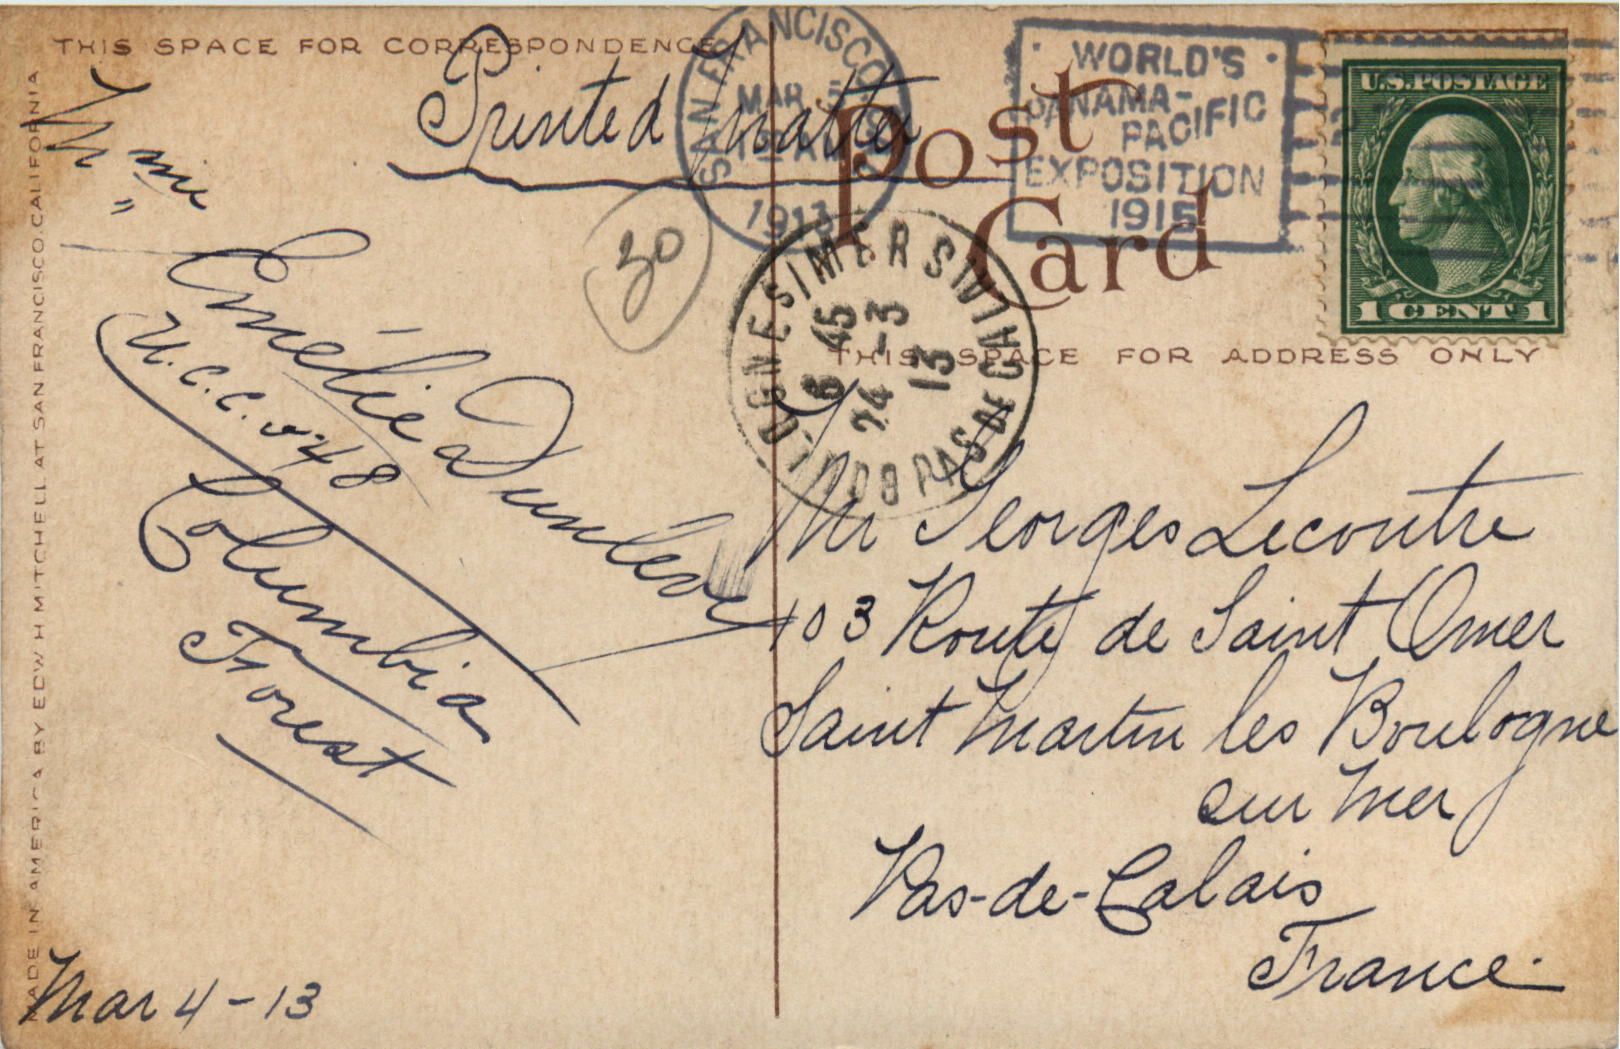 THIS SPACE FOR CORRESPONDENCE
Printed Matter
SAN FRANCISCO
MAR 5
1913
WORLD'S
PANAMA-
PACIFIC
EXPOSITION
1915
U.S. POSTAGE
1 CENT 1
Post
Card
THIS SPACE FOR ADDRESS ONLY
30
BOULOGNE S MER
PAS DE CALAIS
6 45
24 -3
13
Mme
Emélie Dunlevy
U.C.C. 548
Columbia
Forest
Mar 4 - 13
Mr Georges Lecoutre
103 Route de Saint Omer
Saint Martin les Boulogne
sur Mer
Pas-de-Calais
France.
MADE IN AMERICA BY EDW H MITCHELL AT SAN FRANCISCO. CALIFORNIA